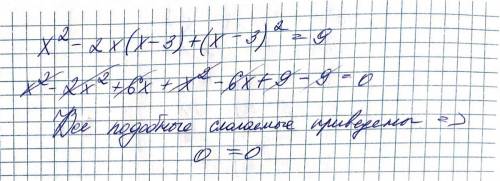 x² - 2x(x-3)+(x-3)² = 9
x² - 2x² + 6x + x² - 6x + 9 - 9 = 0
Все подобные слагаемые приведены =>
0 = 0